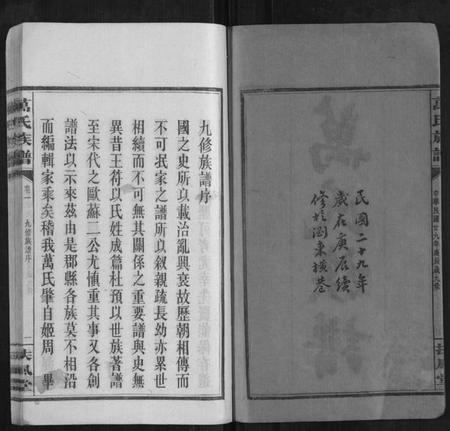 萬氏族譜
中華民國廿九年
民國二十九年
歲在庚辰續
修於
東橫巷
扶風堂
九修族譜序
國之史所以載治亂興衰故歷朝相傳而
不可泯家之譜所以叙親疏長幼亦累世
相續而不可無其關係之重要譜與史無
異昔王符以氏姓成篇杜預以世族著譜
至宋代之歐蘇二公尤慎重其事又各創
譜法以示來茲由是郡縣各族莫不相沿
而編輯家乘矣稽我萬氏肇自姬周 畢
萬氏族譜
卷一 九修族譜序
扶風堂